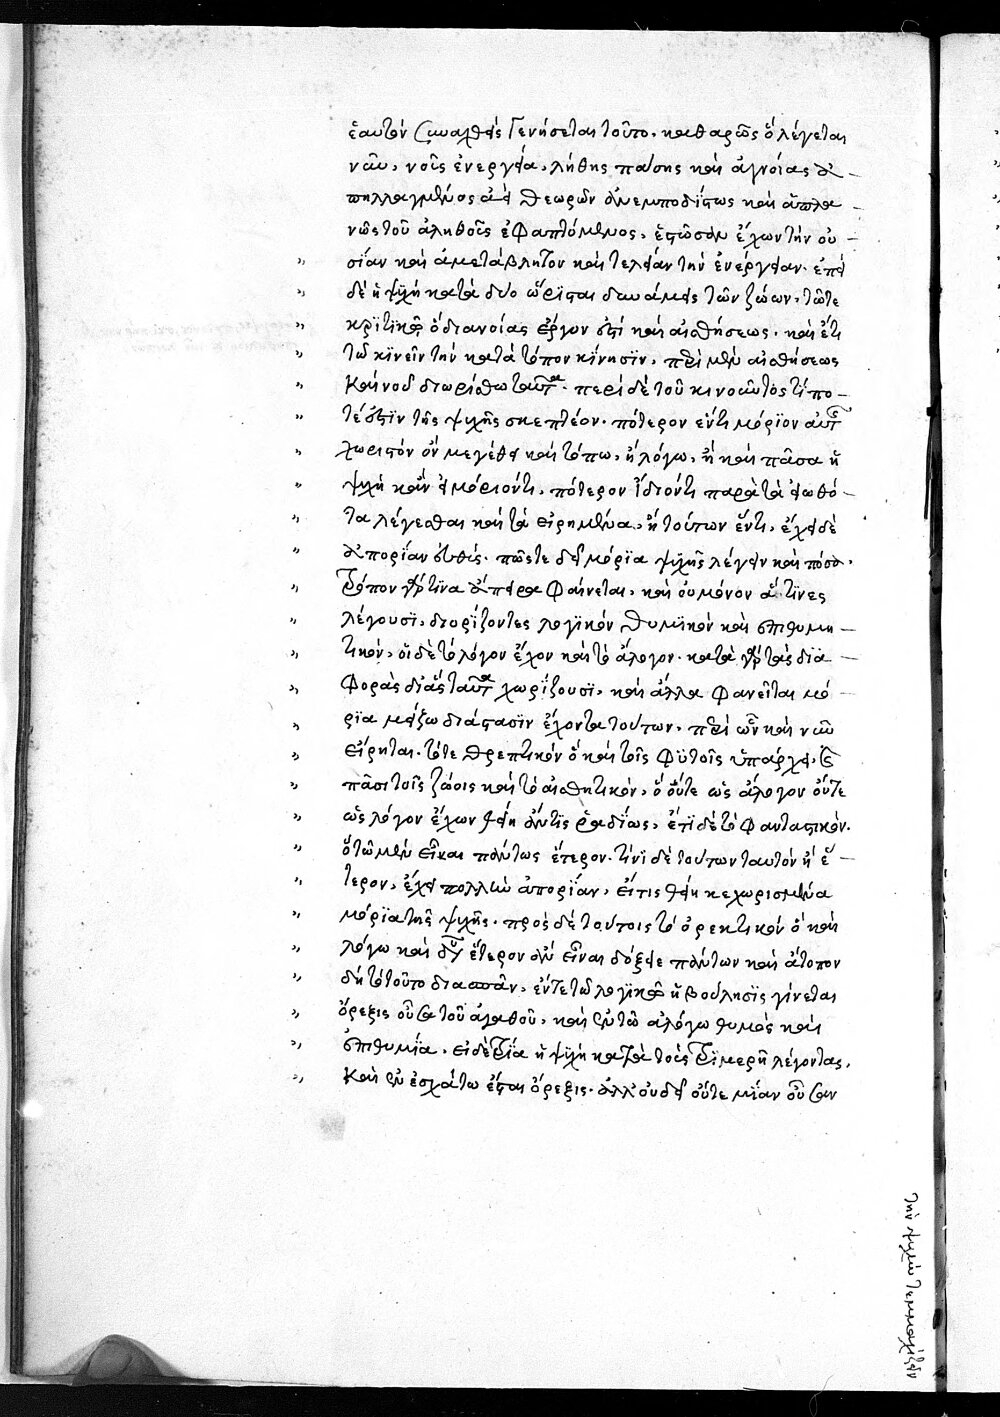 ἑαυτὸν συναχθεὶς γενήσεται τοῦτο, καθαρῶς ὃ λέγεται
νοῦν, νοῦς ἐνεργείᾳ, λήθης πάσης καὶ ἀγνοίας ἀ-
πηλλαγμένος ἀεὶ θεωρῶν ἀνεμποδίστως καὶ ἀπλα-
νῶς τοῦ ἀληθοῦς ἐφαπτόμενος, ἑστῶσαν ἔχων τὴν οὐ-
σίαν καὶ ἀμετάβλητον καὶ τελείαν τὴν ἐνέργειαν. ἐπεὶ
δὲ ἡ ψυχὴ κατὰ δύο ὥρισται δυνάμεις τῶν ζώων, τῷ τε
κριτικῷ ὃ διανοίας ἔργον ἐστὶ καὶ αἰσθήσεως. καὶ ἔτι
τῷ κινεῖν τὴν κατὰ τόπον κίνησϊν, περὶ μὲν αἰσθήσεως
καὶ νοῦ διωρίσθω ταῦτα. περὶ δὲ τοῦ κινοῦντος τί πο-
τέ ἐστϊν τῆς ψυχῆς σκεπτέον. πότερον ἕν τι μόρϊον αὐτῆς
χωριστὸν ὂν μεγέθει καὶ τόπω, ἢ λόγω, ἢ καὶ πᾶσα ἡ
ψυχὴ κἂν εἰ μόριόν τι, πότερον ἴδιόν τι παρὰ τὰ εἰωθό-
τα λέγεσθαι καὶ τὰ εἰρημένα, ἢ τούτων ἕν τι, ἔχει δὲ
ἀπορίαν εὐθύς. πῶς τε δεῖ μόρϊα ψυχῆς λέγειν καὶ πόσα.
τρόπον γάρ τϊνα ἄπειρα φαίνεται, καὶ οὐ μόνον ἅ τϊνες
λέγουσϊ, διορίζοντες λογϊκὸν θυμϊκὸν καὶ ἐπιθυμη-
τικὸν, οἱ δὲ τὸ λόγον ἔχον καὶ τὸ ἄλογον. κατὰ γὰρ τὰς δϊα-
φορὰς δι᾽ ἃς ταῦτα χωρίζουσϊ, καὶ ἄλλα φανεῖται μό-
ρϊα μείζω διάστασϊν ἔχοντα τούτων. περὶ ὧν καὶ νῦν
εἴρηται. τό τε θρεπτικὸν ὃ καὶ τοῖς φυτοῖς ὑπάρχει καὶ
πᾶσι τοῖς ζώοις καὶ τὸ αἰσθητικὸν, ὃ οὔτε ὡς ἄλογον οὔτε
ὡς λόγον ἔχων θείη ἄν τϊς ῥαδίως, ἔτϊ δὲ τὸ φανταστικὸν.
ὃ τῷ μὲν εἶναι πάντως ἕτερον. τίνϊ δὲ τούτων ταυτὸν ἢ ἕ-
τερον, ἔχει πολλὴν ἀπορίαν, εἴ τις θείη κεχωρισμένα
μόρϊα τῆς ψυχῆς. πρὸς δὲ τούτοις τὸ ὀρεκτικὸν ὃ καὶ
λόγω καὶ δυνάμει ἕτερον ἂν εἶναι δόξειε πάντων καὶ ἄτοπον
δὴ τὸ τοῦτο διασπᾶν, ἔν τε τῶ λογικῷ ἡ βούλησϊς γίνεται
ὄρεξις οὖσα τοῦ ἀγαθοῦ, καὶ ἐν τῶ ἀλόγω θυμὸς καὶ
ἐπιθυμία. εἰ δὲ τρία ἡ ψυχὴ κατὰ τοὺς τρϊμερῆ λέγοντας,
καὶ ἐν ἑκάστω ἔσται ὄρεξις. ἀλλ᾽ οὐδ᾽ εἰ οὔτε μίαν οὖσαν
τὴν ψυχὴν